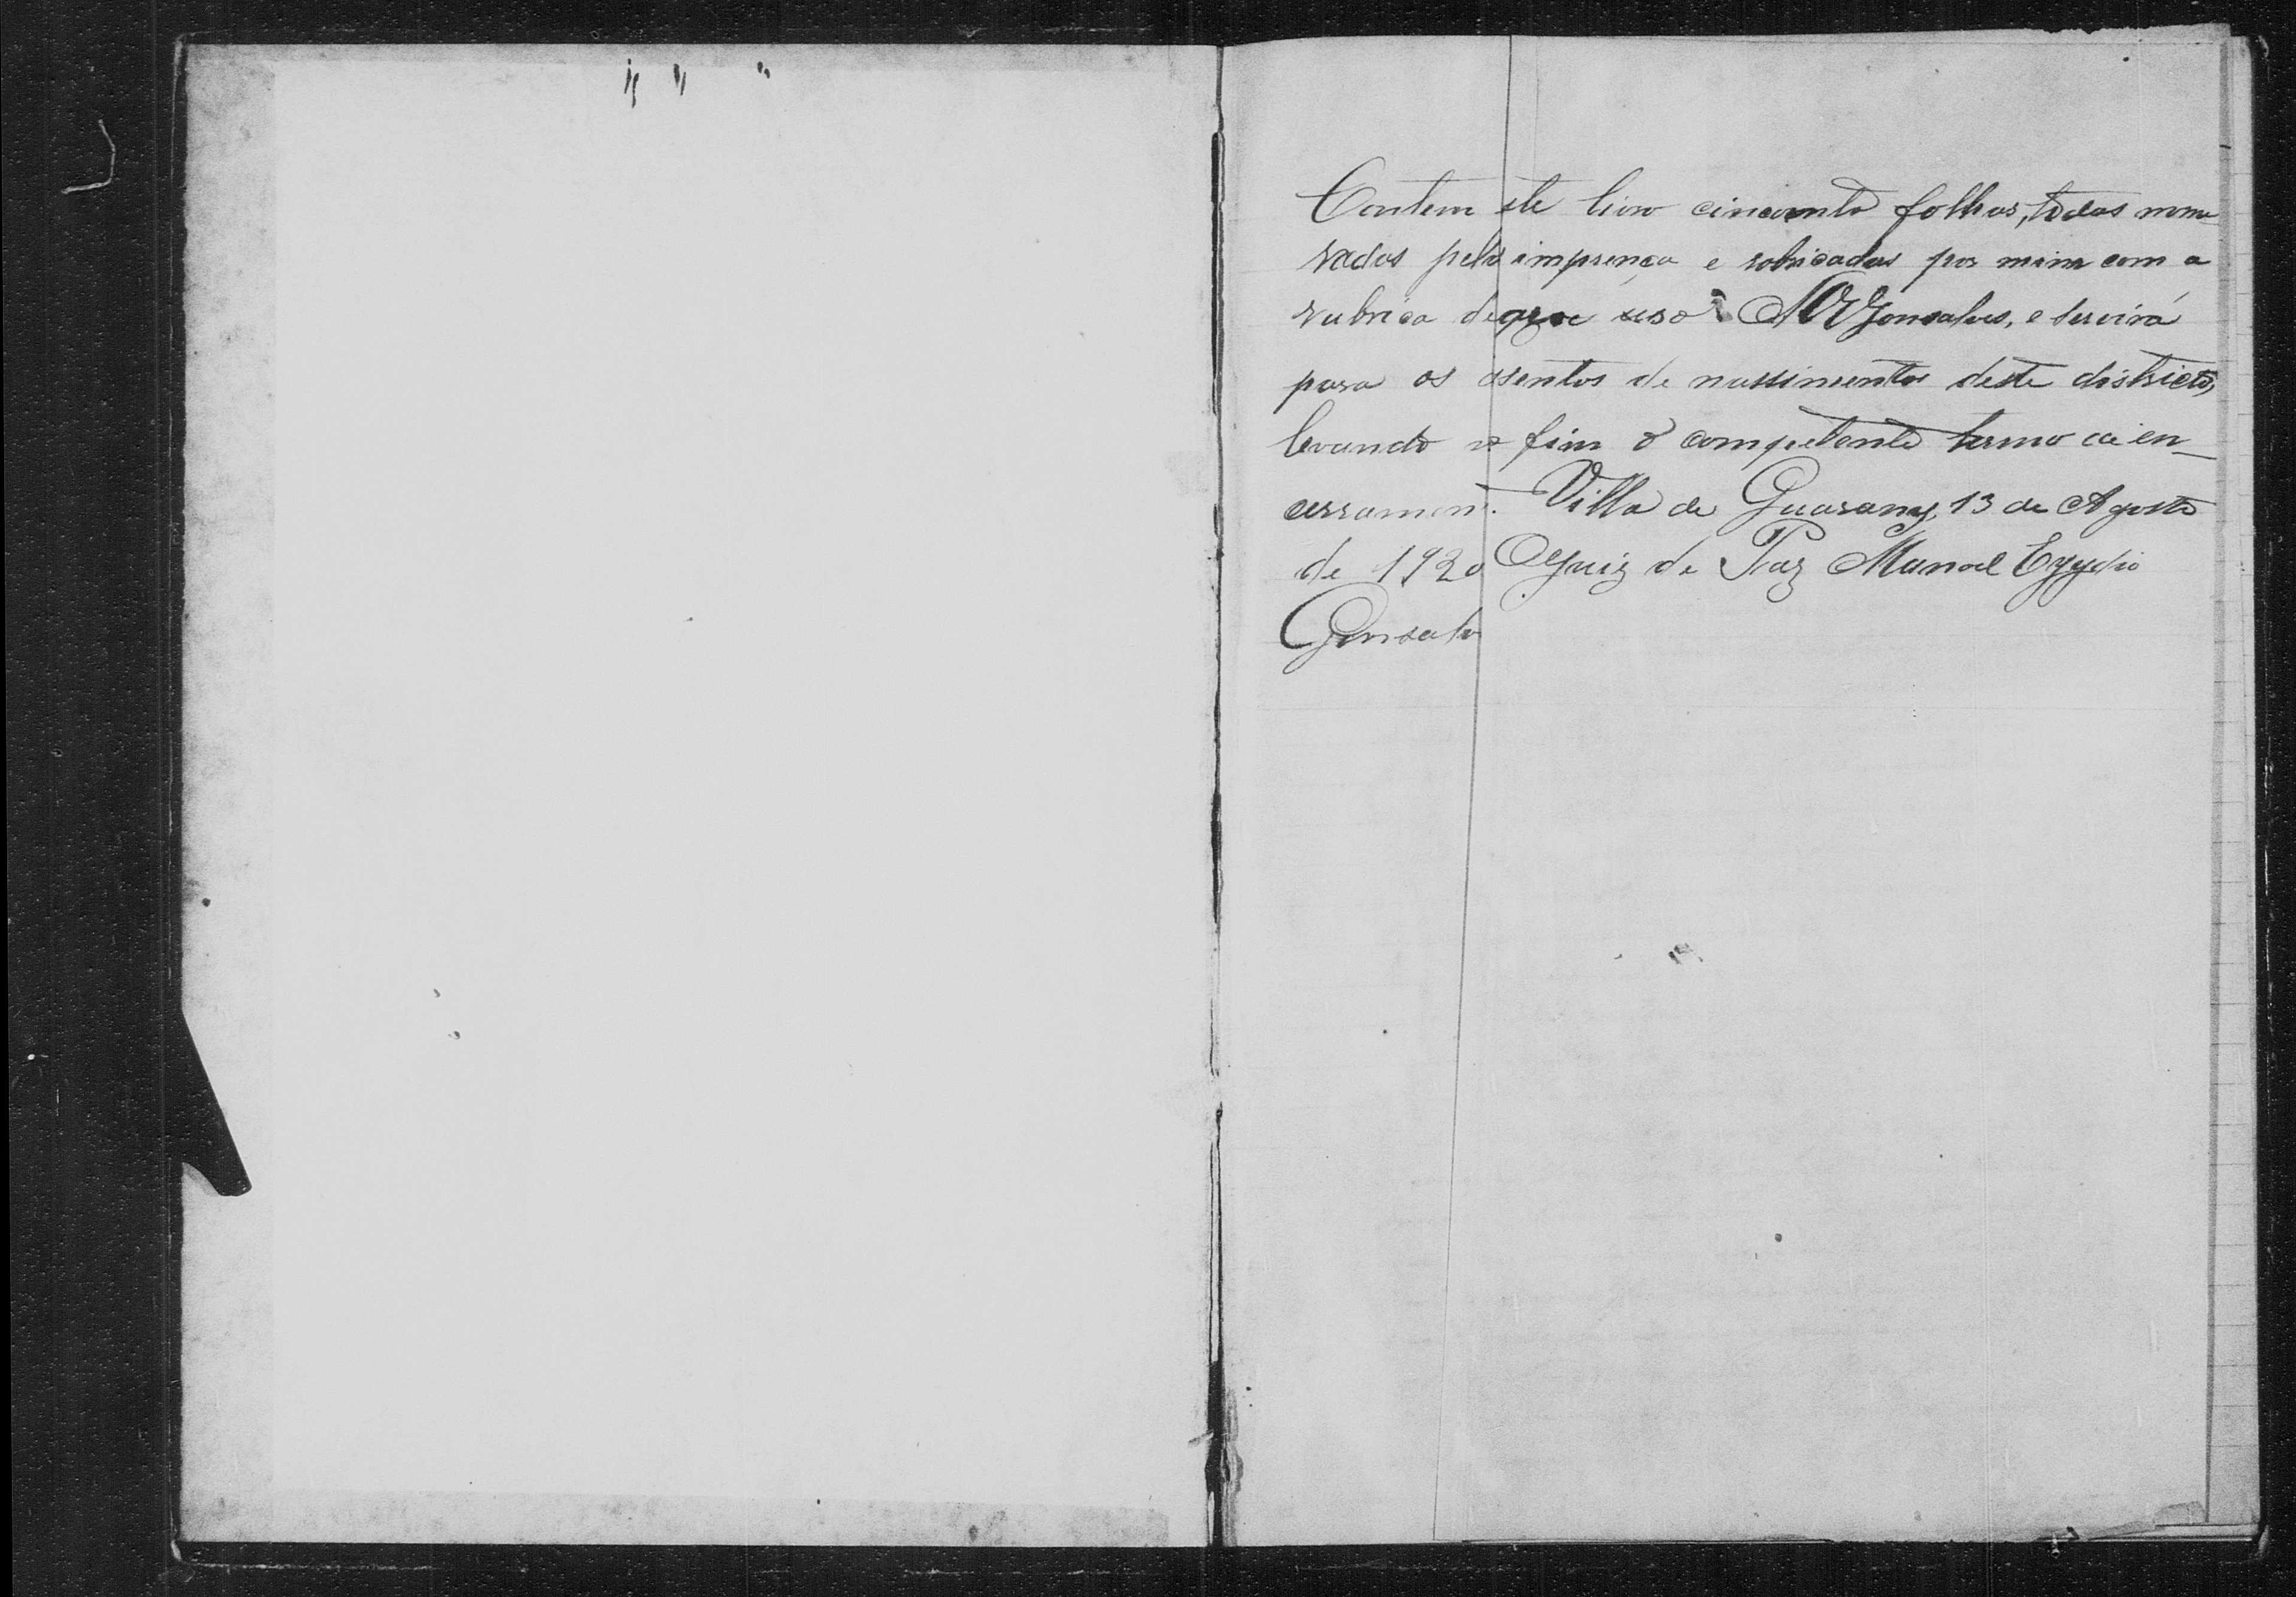 Contem este livro cincoenta folhas, todas nume
radas pela imprença e robricadas por mim com a
rubrica de que uso Gonsalves, e servirá
para os asentos de nassimentos deste districto,
levando no fim o competente termo de en
cerramen. Villa de Guarany, 13 de Agosto
de 1920 O Juiz de Paz Manoel Egydio
Gonsalv